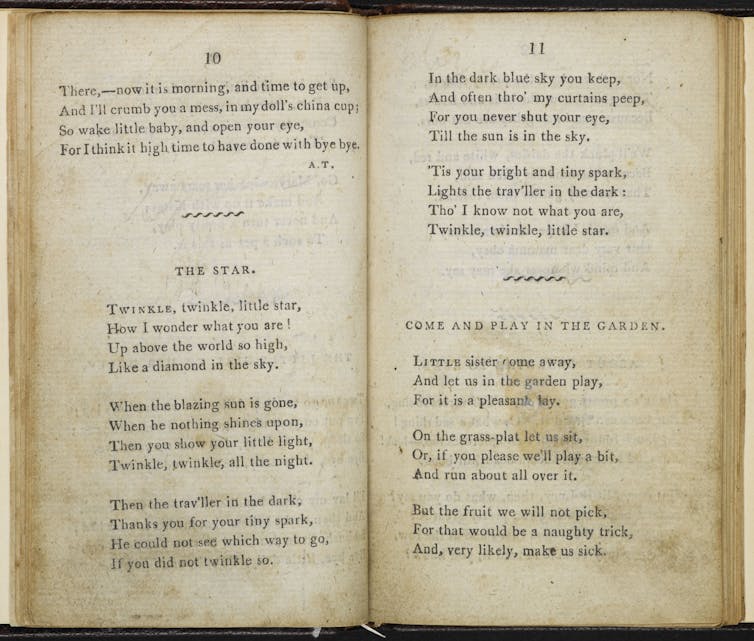 10
There,—now it is morning, and time to get up,
And I'll crumb you a mess, in my doll's china cup;
So wake little baby, and open your eye,
For I think it high time to have done with bye bye.
A.T.
THE STAR.
TWINKLE, twinkle, little star,
How I wonder what you are!
Up above the world so high,
Like a diamond in the sky.
When the blazing sun is gone,
When he nothing shines upon,
Then you show your little light,
Twinkle, twinkle, all the night.
Then the trav'ller in the dark,
Thanks you for your tiny spark,
He could not see which way to go,
If you did not twinkle so.
11
In the dark blue sky you keep,
And often thro' my curtains peep,
For you never shut your eye,
Till the sun is in the sky.
'Tis your bright and tiny spark,
Lights the trav'ller in the dark:
Tho' I know not what you are,
Twinkle, twinkle, little star.
COME AND PLAY IN THE GARDEN.
LITTLE sister come away,
And let us in the garden play,
For it is a pleasant day.
On the grass-plat let us sit,
Or, if you please we'll play a bit,
And run about all over it.
But the fruit we will not pick,
For that would be a naughty trick,
And, very likely, make us sick.